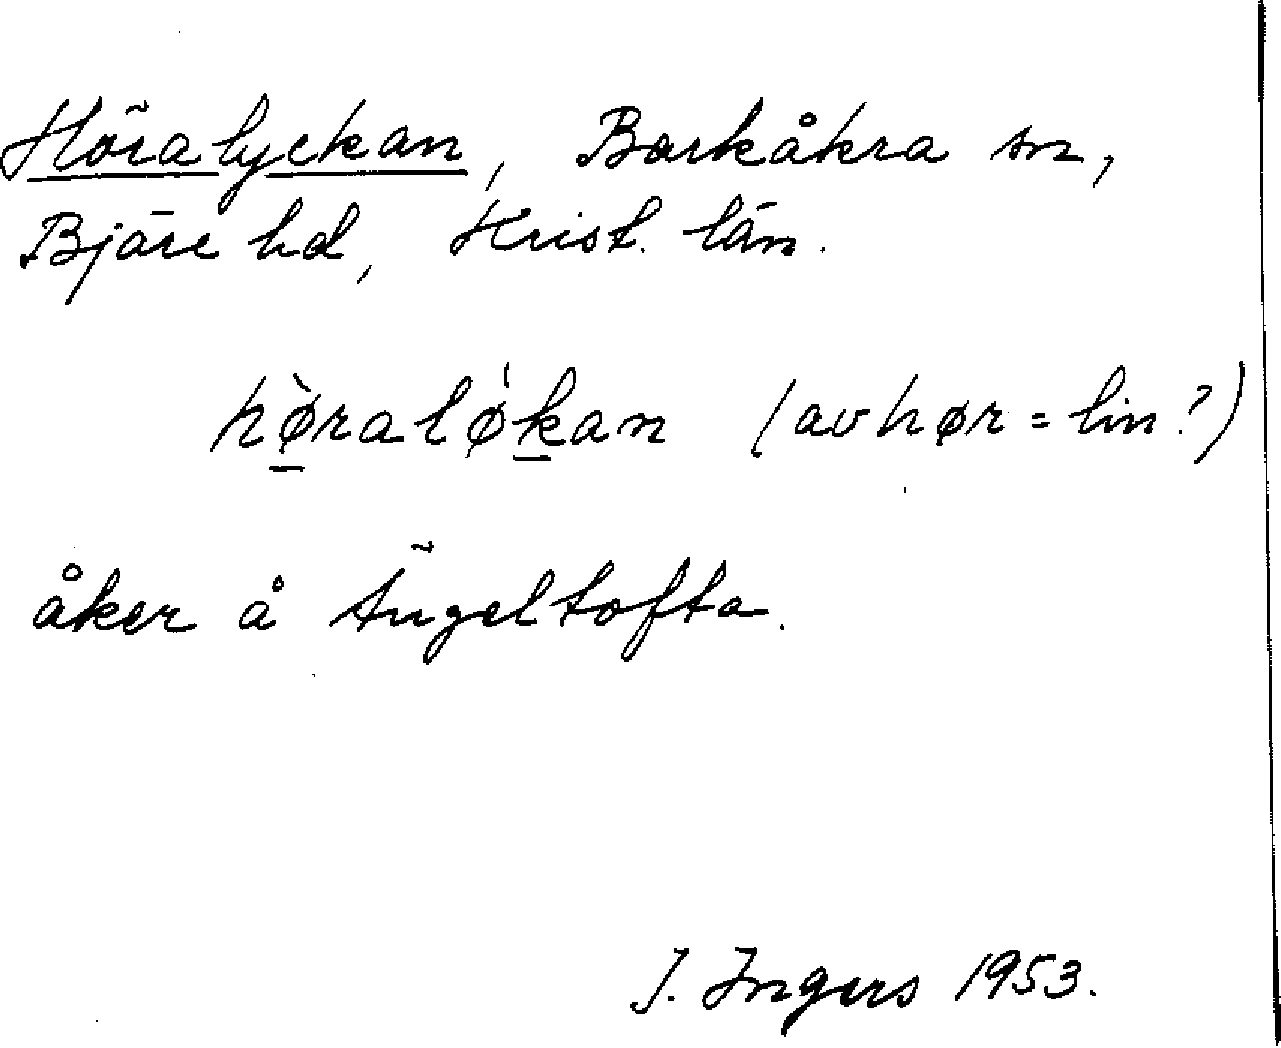 Höralyckan, Barkåkra sn,
Bjäre hd, Krist. län.
hø̀ralø̍kan (av hør = lin?)
åker å Ängeltofta.
I. Ingers 1953.